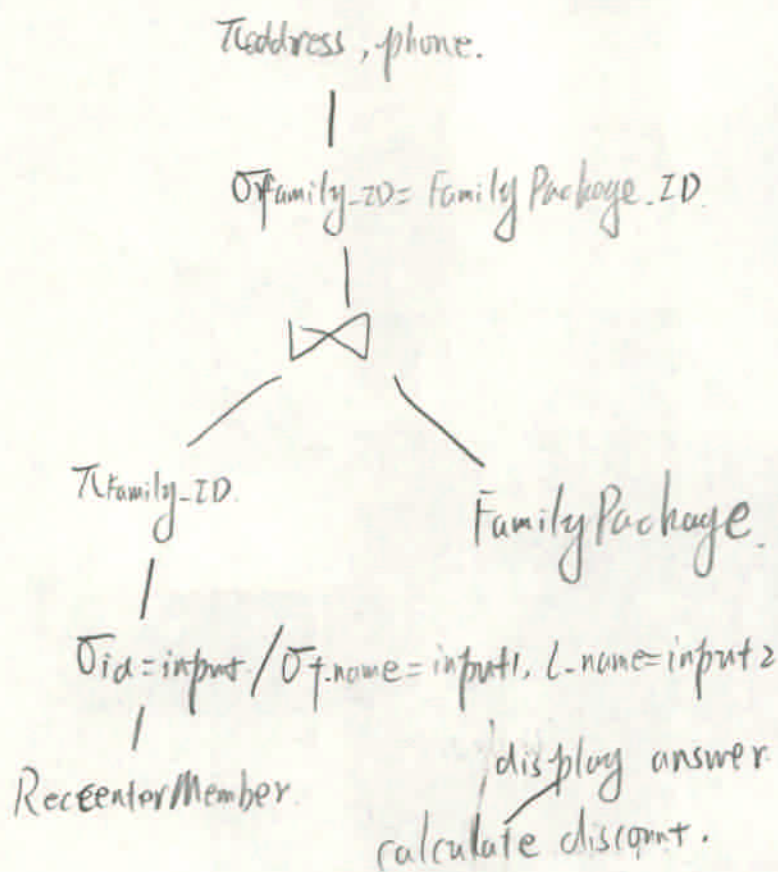 π address, phone.
σ family_ID = FamilyPackage.ID.
⋈
π Family_ID.
FamilyPackage.
σ id = input / σ f.name = input1, L-name = input2
display answer.
RecCenterMember.
calculate discount.